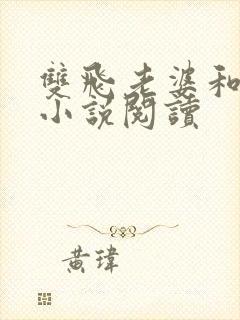 雙飛老婆和
小說閱讀
黃瑋